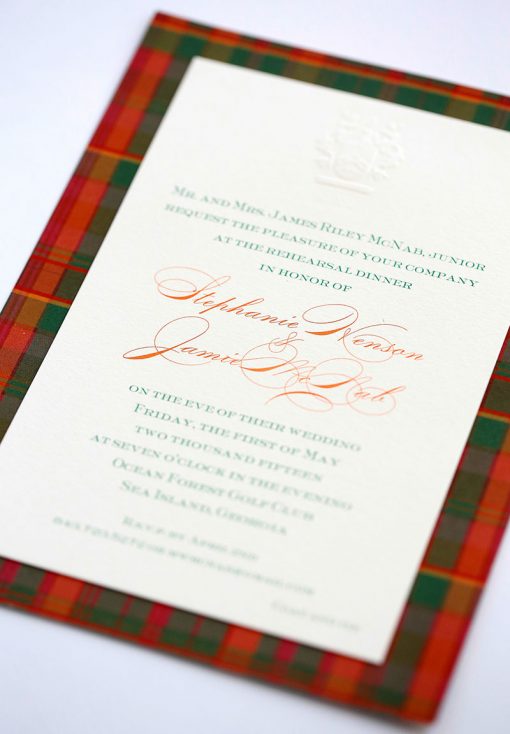 Mr. and Mrs. James Riley McNab, Junior
request the pleasure of your company
at the rehearsal dinner
in honor of
Stephanie Wenson
&
Jamie McNab
on the eve of their wedding
Friday, the first of May
two thousand fifteen
at seven o'clock in the evening
Ocean Forest Golf Club
Sea Island, Georgia
R.s.v.p. by April